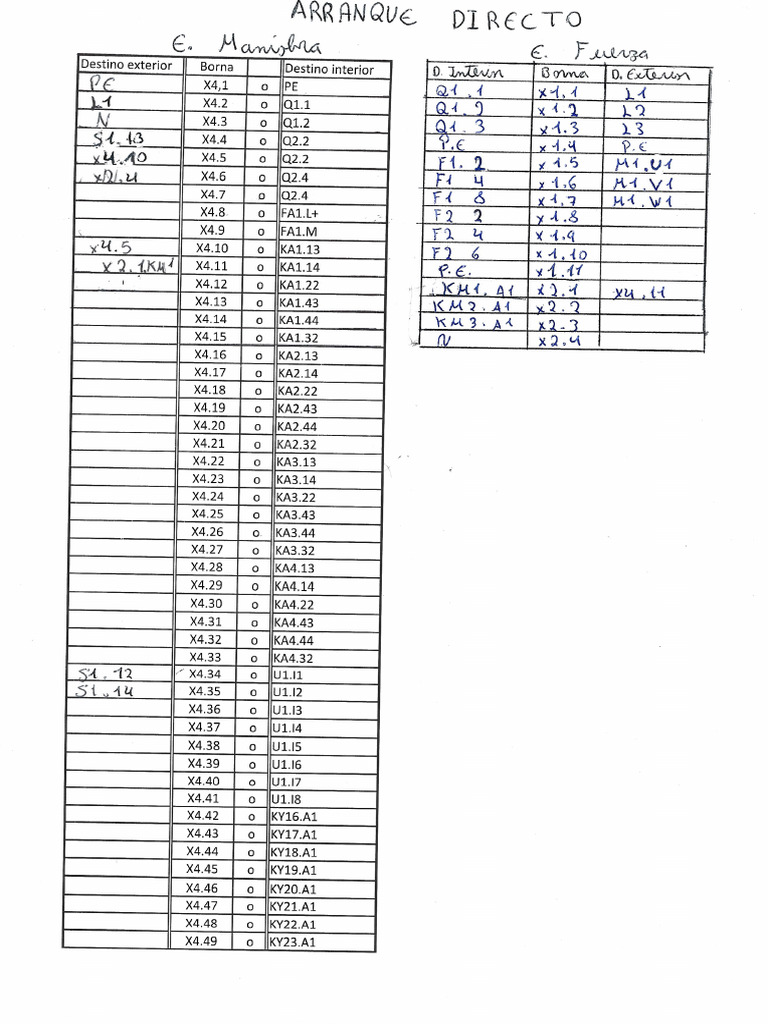 ARRANQUE DIRECTO
E. Maniobra
Destino exterior Borna Destino interior
PE X4,1 o PE
L1 X4.2 o Q1.1
N X4.3 o Q1.2
S1.13 X4.4 o Q2.2
x4.10 X4.5 o Q2.2
x2.4 X4.6 o Q2.4
X4.7 o Q2.4
X4.8 o FA1.L+
X4.9 o FA1.M
x4.5 X4.10 o KA1.13
x2.1.KM1 X4.11 o KA1.14
X4.12 o KA1.22
X4.13 o KA1.43
X4.14 o KA1.44
X4.15 o KA1.32
X4.16 o KA2.13
X4.17 o KA2.14
X4.18 o KA2.22
X4.19 o KA2.43
X4.20 o KA2.44
X4.21 o KA2.32
X4.22 o KA3.13
X4.23 o KA3.14
X4.24 o KA3.22
X4.25 o KA3.43
X4.26 o KA3.44
X4.27 o KA3.32
X4.28 o KA4.13
X4.29 o KA4.14
X4.30 o KA4.22
X4.31 o KA4.43
X4.32 o KA4.44
X4.33 o KA4.32
S1.12 X4.34 o U1.I1
S1.14 X4.35 o U1.I2
X4.36 o U1.I3
X4.37 o U1.I4
X4.38 o U1.I5
X4.39 o U1.I6
X4.40 o U1.I7
X4.41 o U1.I8
X4.42 o KY16.A1
X4.43 o KY17.A1
X4.44 o KY18.A1
X4.45 o KY19.A1
X4.46 o KY20.A1
X4.47 o KY21.A1
X4.48 o KY22.A1
X4.49 o KY23.A1
E. Fuerza
D. Interior Borna D. Exterior
Q1.1 x1.1 L1
Q1.2 x1.2 L2
Q1.3 x1.3 L3
P.E x1.4 P.E
F1.2 x1.5 M1.U1
F1 4 x1.6 M1.V1
F1 8 x1.7 M1.W1
F2 2 x1.8
F2 4 x1.9
F2 6 x1.10
P.E. x1.11
KM1.A1 x2.1 x4.11
KM2.A1 x2.2
KM3.A1 x2.3
N x2.4